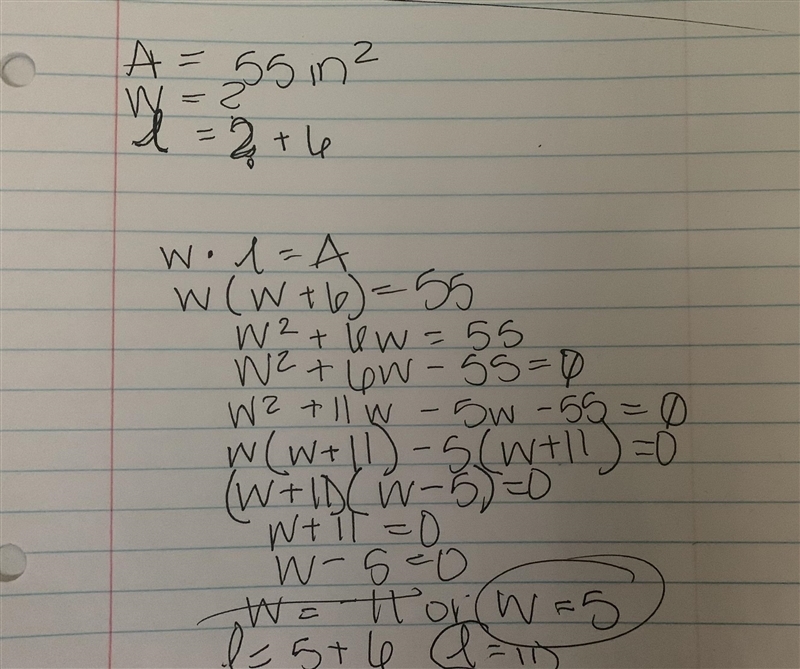 A = 55 in²
W = ?
l = ? + 6
w · l = A
w(w+6) = 55
w² + 6w = 55
w² + 6w - 55 = 0
w² + 11w - 5w - 55 = 0
w(w+11) - 5(w+11) = 0
(w+11)(w-5) = 0
w+11 = 0
w-5 = 0
w = -11 or w = 5
l = 5+6 l = 11